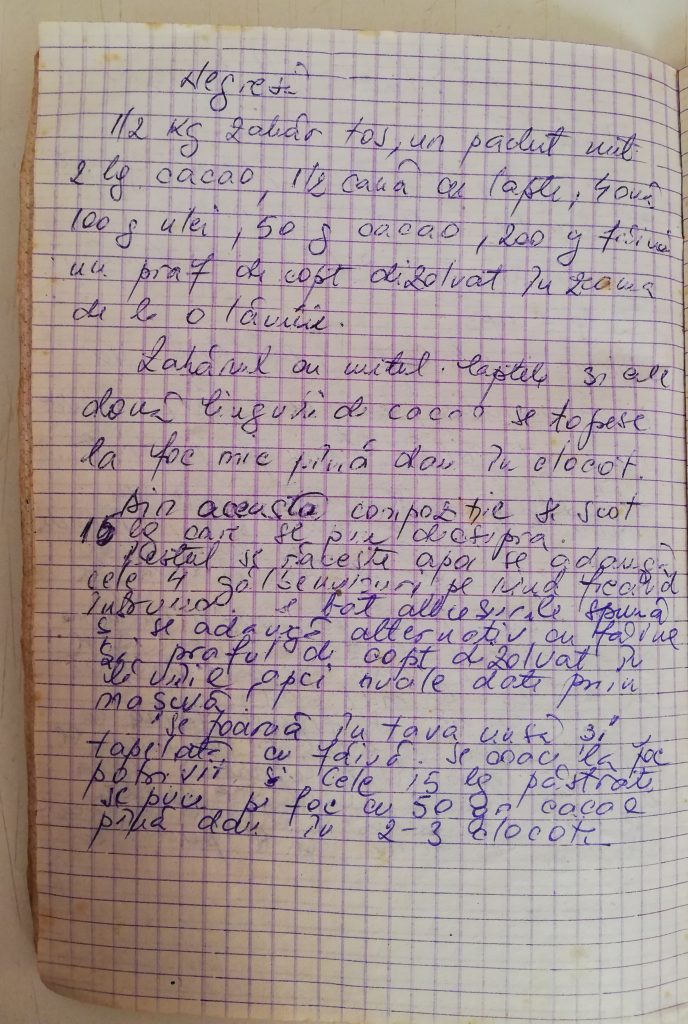 Negresă
1/2 kg zahăr tos, un pachet unt
2 lg cacao, 1/2 cană cu lapte, 4 ouă
100 g ulei, 50 g cacao, 200 g făină
un praf de copt dizolvat în zeama
de la o lămîie.
Zahărul cu untul. laptele și cele
două linguri de cacao se topesc
la foc mic pînă dau în clocot.
Din aceasta compoziție se scot
15 lg care se pun deasupra.
Restul se răcește apoi se adaugă
cele 4 gălbenușuri pe rînd frecând
întruna. se bat albușurile spumă
și se adaugă alternativ cu făina
și praful de copt dizolvat în
lămîie, apoi nucale date prin
mașină.
se toarnă în tava unsă și
tapetată cu făină. se coace la foc
potrivit și cele 15 lg păstrate
se pun pe foc cu 50 gr cacao
pînă dau în 2-3 clocote